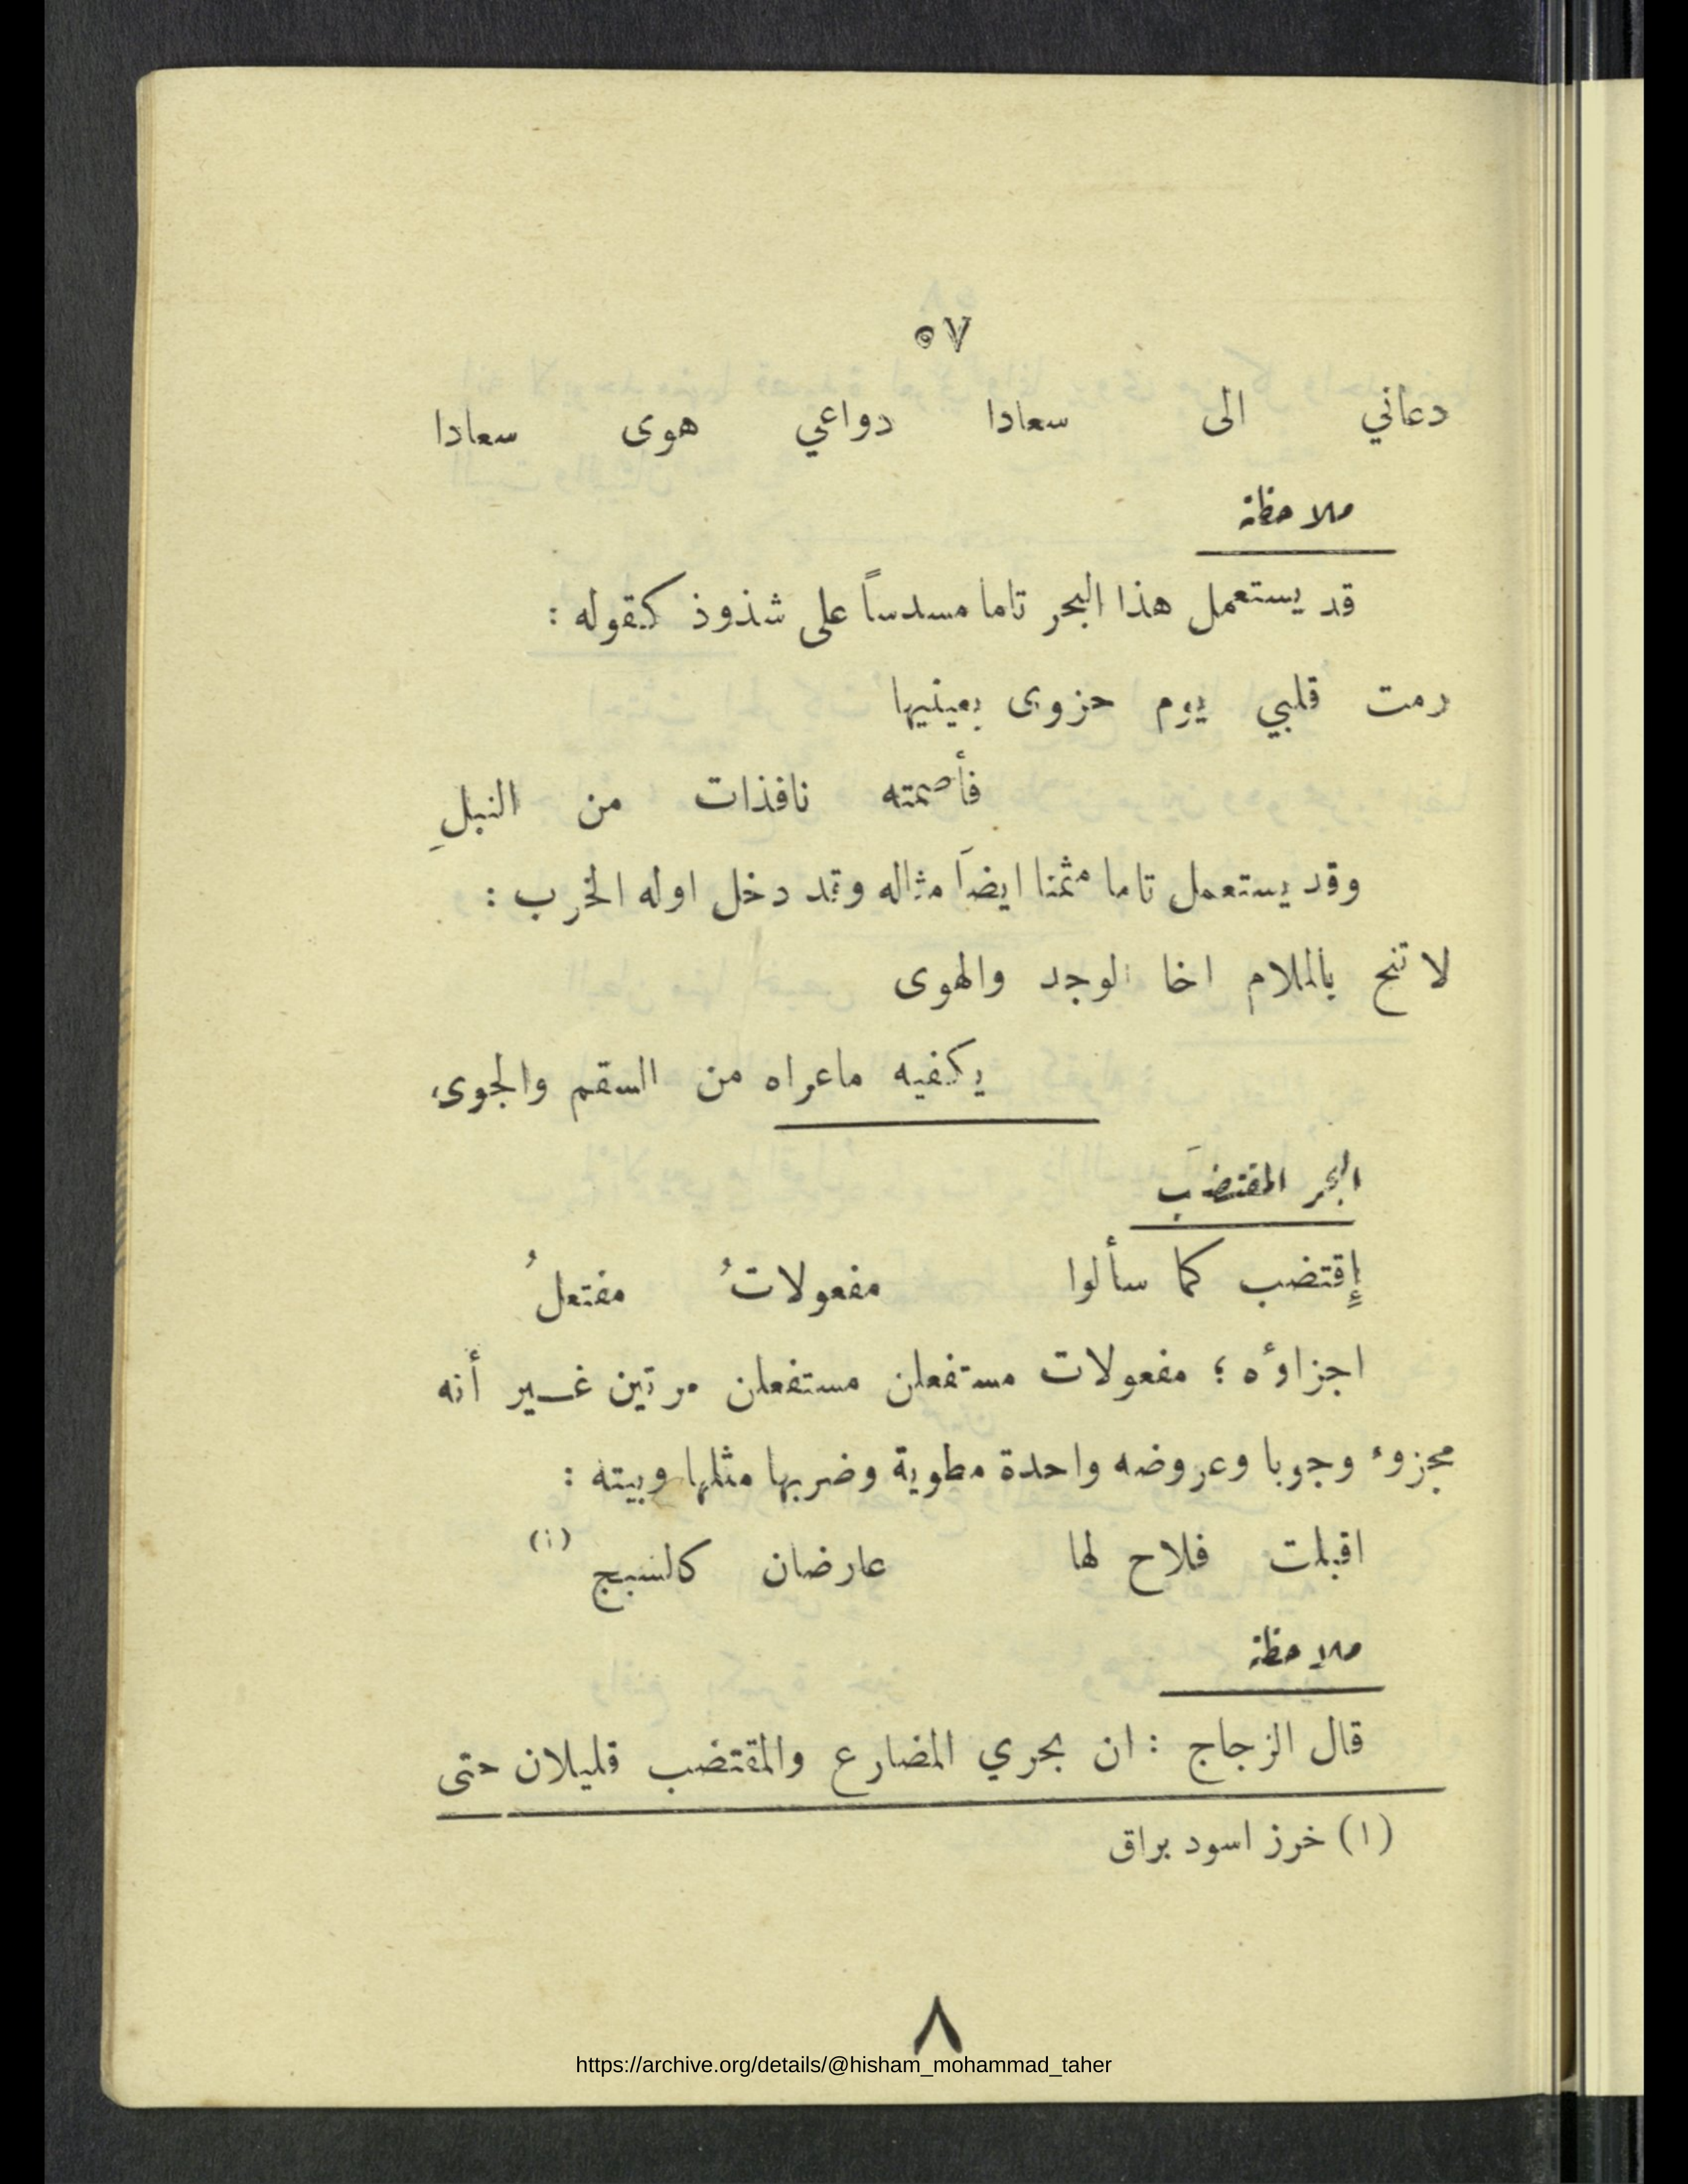 ٥٧
دعاني الى سعادا دواعي هوى سعادا
ملاحظة
قد يستعمل هذا البحر تاما مسدساً على شذوذ كقوله :
رمت قلبي يوم حزوى بعينيها
فأصمته نافذات من النبلِ
وقد يستعمل تاما مثمنا ايضاَ مثاله وقد دخل اوله الخرب :
لا تنح بالملام اخا الوجد والهوى
يكفيه ماعراه من السقم والجوى
البحر المقتضَب
إِقتضب كما سألوا مفعولاتُ مفتعلُ
اجزاؤه ؛ مفعولات مستفعلن مستفعلن مرتين غير أنه
مجزوء وجوبا وعروضه واحدة مطوية وضربها مثلها وبيته :
اقبلت فلاح لها عارضان كالسبج (١)
ملاحظة
قال الزجاج : ان بحري المضارع والمقتضب قليلان حتى
(١) خرز اسود براق
٨
https://archive.org/details/@hisham_mohammad_taher